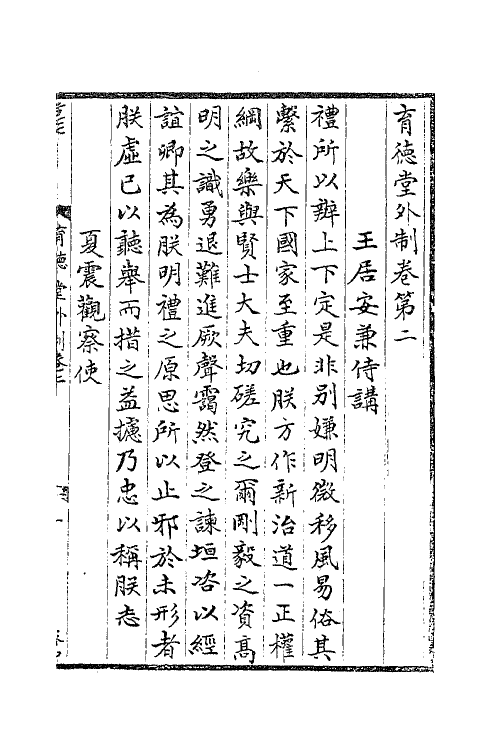 育德堂外制卷第二
王居安兼侍講
禮所以辨上下定是非别嫌明微移風易俗其
繫於天下國家至重也朕方作新治道一正權
綱故樂與賢士大夫切磋究之爾剛毅之資髙
明之識勇退難進厥聲靄然登之諫垣咨以經
誼卿其為朕明禮之原思所以止邪於未形者
朕虛已以聽舉而措之益攄乃忠以稱朕志
夏震觀察使
育德堂外制卷二
一